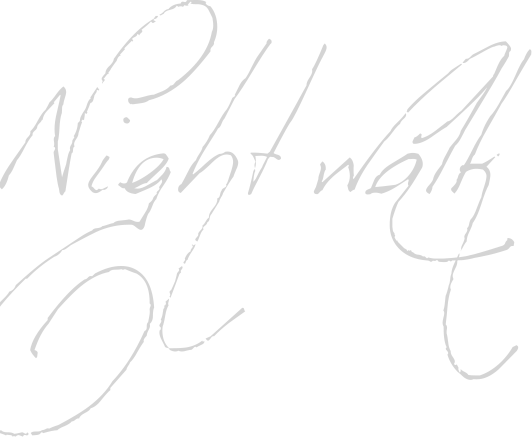 Night walk